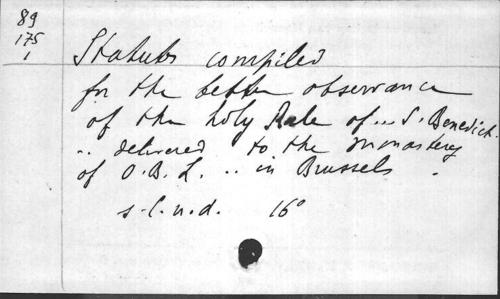 89
175
1
Statutes compiled
for the better observance
of the holy Rule of... S. Benedict.
.. delivered to the monastery
of O.B.L. .. in Brussels.
s.l.n.d. 16°